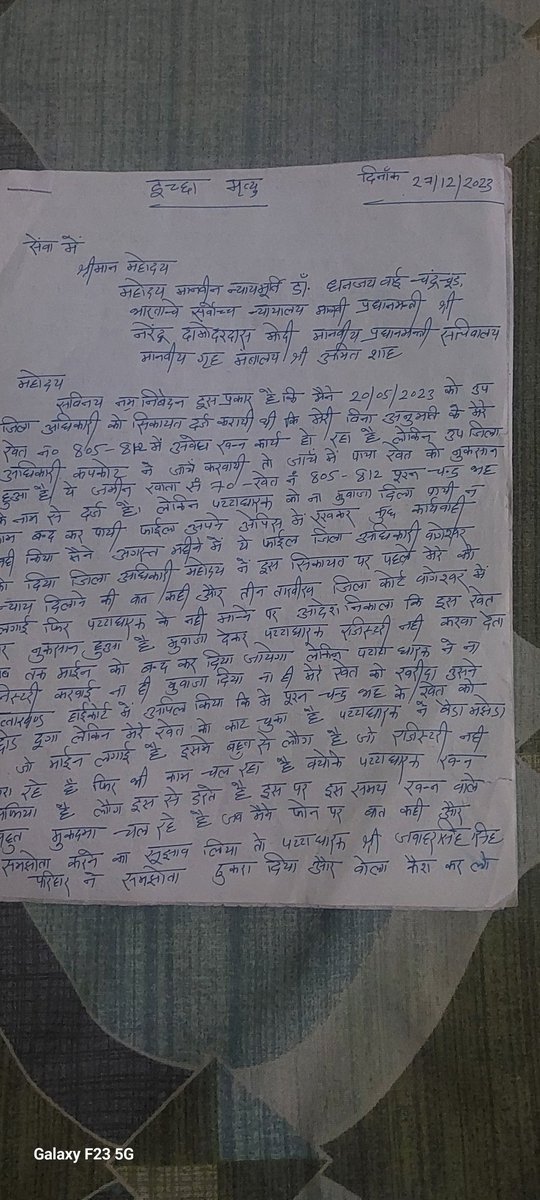 इच्छा मृत्यु
दिनाँक 27/12/2023
सेवा में
श्रीमान महोदय
महोदय माननीय न्यायमूर्ति डॉ. धनजय वाई चंद्रचूड़.
सर्वोच्च न्यायालय प्रधानमन्त्री श्री
नरेंद्र दामोदरदास मोदी माननीय प्रधानमन्त्री सचिवालय
माननीय गृह मंत्रालय श्री अमित शाह
महोदय
सविनय नम्र निवेदन इस प्रकार है कि मैने 20/05/2023 को उप
जिला अधिकारी को सिकायत दर्ज करायी थी कि मेरी बिना अनुमती के मेरे
खेत नं० 805-812 में अवैध खनन कार्य हो रहा है लेकिन उप जिला
अधिकारी कपकोट ने जाँच करवायी तो जाँच में पाया खेत को नुकसान
हुआ है ये जमीन खाता सं 70 - खेत नं 805-812 पूरन चन्द्र भट्ट
के नाम से दर्ज है। लेकिन पट्टाधारक को ना मुवाजा दिला पायी न
काम बन्द कर पायी फाईल अपने ऑफिस में रखकर कुछ कार्यवाही
नही किया मैने अगस्त महीने में ये फाईल जिला अधिकारी वागेश्वर
को दिया जिला अधिकारी महोदय ने इस सिकायत पर पहल मेरे को
न्याय दिलाने की बात कही और तीन तारीख जिला कोर्ट वागेश्वर में
लगाई फिर पट्टाधारक के नही मानने पर आदेश निकाला कि इस खेत
पर नुकसान हुआ है मुवाजा देकर पट्टाधारक रजिस्टरी नही करवा देता
तब तक माईन को बन्द कर दिया जायेगा लेकिन पट्टाधारक ने ना
रजिस्टरी करवाई ना ही मुवाजा दिया ना ही मेरे खेत को खरीदा उसने
उत्तराखण्ड हाईकोर्ट में अपील किया कि मे पूरन चन्द्र भट्ट के खेत को
छोड दूगा लेकिन मेरे खेत को काट चुका है पट्टाधारक ने
जो माईन लगाई है इसमे बहुत से लोग है जो रजिस्टरी नही
करा रहे है फिर भी काम चल रहा है क्योकि पट्टाधारक खनन
माफिया है लोग इस से डरते है इस पर इस समय खनन वाले
बहुत मुकदमा चल रहे है जब मैने फोन पर बात कही और
समझोता करने का सुझाव लिया तो पट्टाधारक श्री सिंह
परिहार ने समझोता ठुकरा दिया और बोला कैश कर लो
Galaxy F23 5G